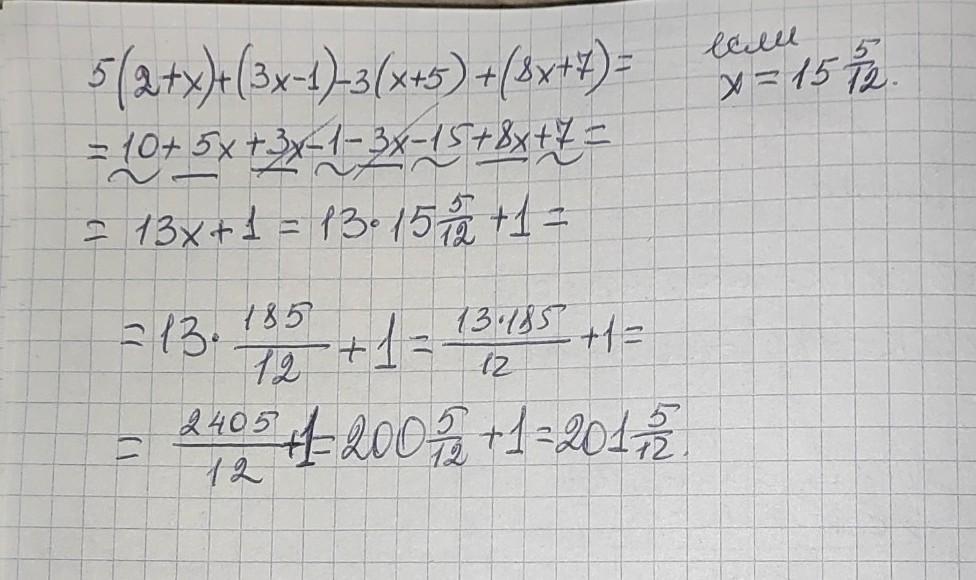 5(2+x)+(3x-1)-3(x+5)+(8x+7)= если x=15 5/12.
=10+5x+3x-1-3x-15+8x+7=
=13x+1=13·15 5/12+1=
=13·185/12+1=13·185/12+1=
=2405/12+1=200 5/12+1=201 5/12.